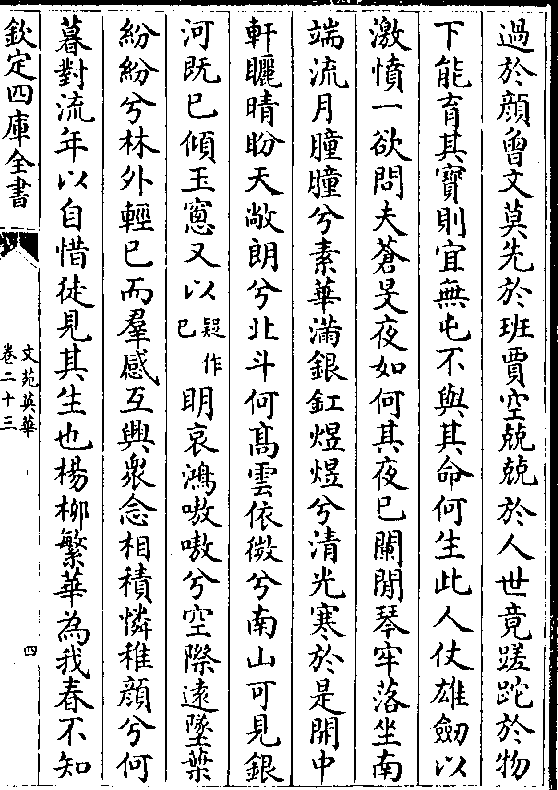 過於顔曾文莫先於班賈空兢兢於人世竟蹉跎於物
下能育其寶則宜無屯不與其命何生此人仗雄劒以
激憤一欲問夫蒼旻夜如何其夜已闌閒琴牢落坐南
端流月瞳瞳兮素華滿銀釭煜煜兮清光寒於是開中
軒矖晴盼天敞朗兮北斗何髙雲依微兮南山可見銀
河既已傾玉窻又以疑作已明哀鴻嗷嗷兮空際逺墜葉
紛紛兮林外輕已而羣感互興衆念相積憐稚顔兮何
暮對流年以自惜徒見其生也楊柳繁華為我春不知
欽定四庫全書
文苑英華
卷二十三
四